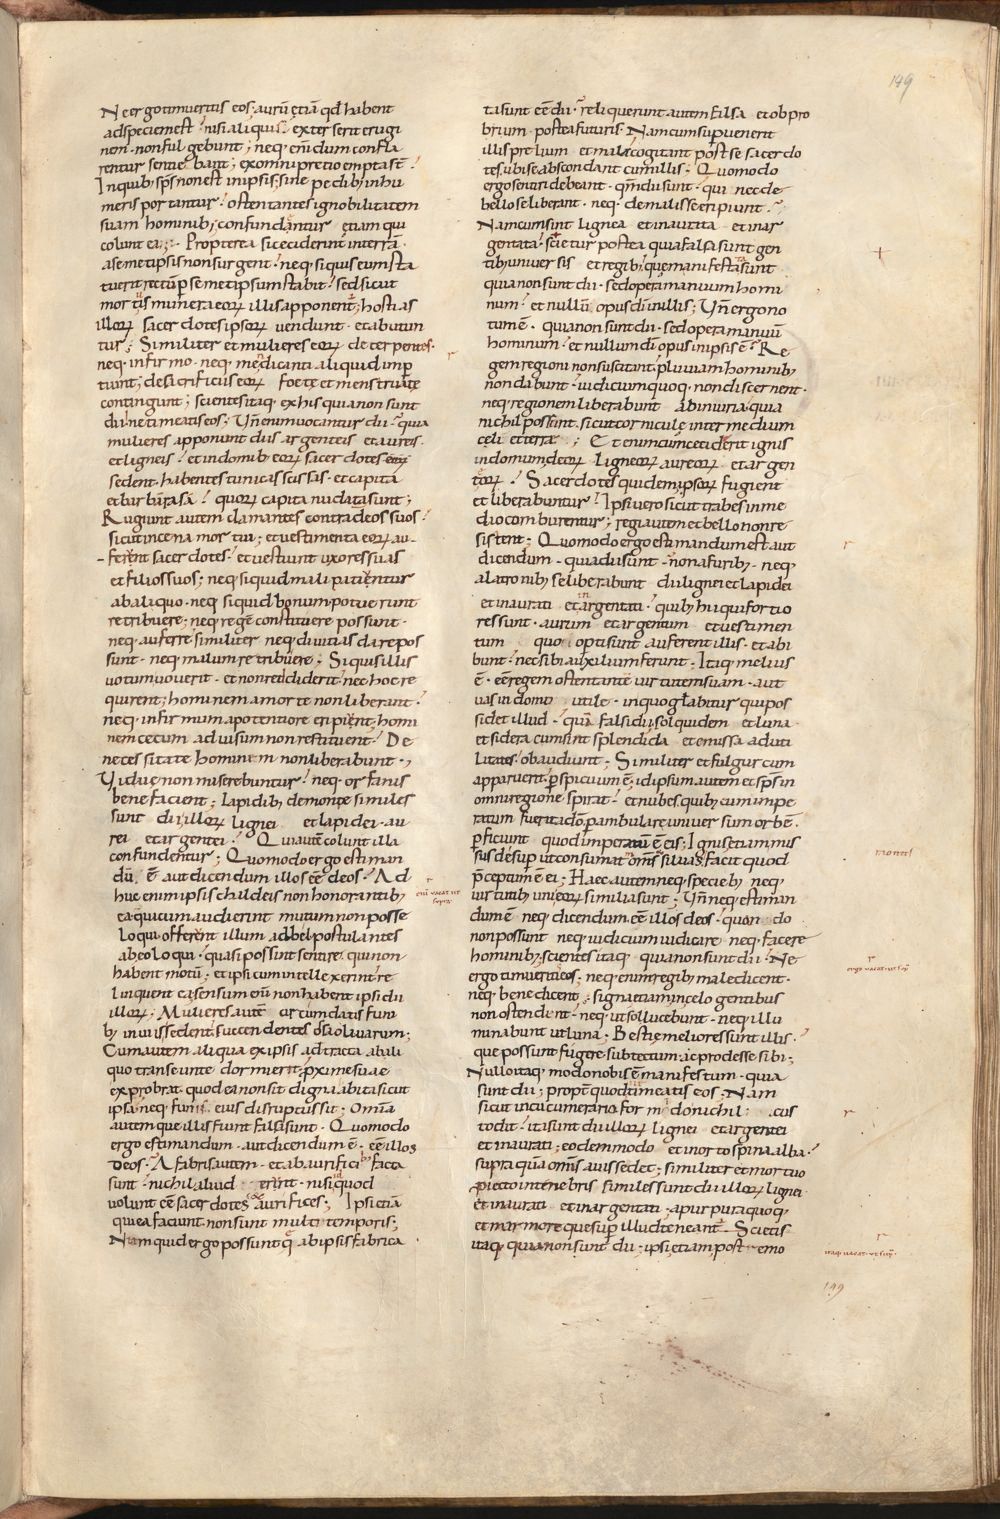 149
Ne ergo timueritis eos; aurū etiā qđ habent
ad speciem est nisi aliquis exterserit erugi
nem non fulgebunt; neq; enī dum confla
rentur sentiebant; ex omni precio empta sт̄
In quib; sp̄s non est in ipsis; sine pedib; in hu
meris portantur ostentantes ignobilitatem
suam hominib; confundantur etiam qui
colunt ea; Propterea si ceciderint in terrā
a semetipsis non surgent neq; si quis eum sta
tuerit rectū p̄ semetipsum stabit sed sicut
mortuis munera eoꝝ illis apponent; hostias
illoꝝ sacerdotes ipsoꝝ uendunt et abutun
tur; Similiter et mulieres eoꝝ decerpentes
neq; infirmo neq; medicanti aliquid imp̄
tiunt; de sacrificiis eoꝝ foete et menstruate
contingunt; scientes itaq; ex his quia non sunt
dii ne timeatis eos; Un̄ enim uocantur dii quia
mulieres apponunt diis argenteis et aureis
et ligneis et in domib; eoꝝ sacerdotes
sedent habentes tunicas scissas et capita
et barbā rasā quoꝝ capita nudata sunt;
Rugiunt autem clamantes contra deos suos
sicut in cena mortui; et uestimenta eoꝝ au
ferent sacerdotes et uestiunt uxores suas
et filios suos; neq; si quid mali patientur
ab aliquo neq; si quid bonum potuerunt
retribuere; neq; regē constituere possunt
neq; auferre similiter neq; diuitias dare pos
sunt neq; malum retribuere; Si quis illis
uotum uouerit et non reddiderit nec hoc re
quirent; hominem a morte non liberant
neq; infirmum a potentiore eripient; homi
nem cecum ad uisum non restituent De
necessitate hominem non liberabunt
Uiduę non miserebuntur neq; orfanis
bene facient; lapidib; de monte similes
sunt dii illoꝝ lignei et lapidei au
rei et argentei Qui autē colunt illa
confundentur; Quomodo ergo estiman
dū ē aut dicendum illos eē deos Ad
huc enim ipsis chaldeis non honorantib;
ea qui cum audierint mutum non posse
loqui offerent illum ad bel postulantes
ab eo loqui quasi possint sentire qui non
habent motū; et ipsi cum intellexerint re
linquent ea sensum enī non habent ipsi dii
illoꝝ; Mulieres autē circumdatis funi
b; in uiis sedent succendentes ossa oliuarum;
Cum autem aliqua ex ipsis adtracta ab ali
quo transeunte dormierit p̄xime suae
exprobrat quod ea non sit digna abita sicut
ipsa neq; funis eius disruptus sit; Omia
autem que illis fiunt falsa sunt Quomodo
ergo estimandum aut dicendum ē eē illos
Deos Afabris autem et ab aurificib; facta
sunt nichil aliud erunt nisi quod
uolunt eē sacerdotes aurifices; Ipsi etiā
qui ea faciunt non sunt multi temporis;
Numquid ergo possunt ab ipsis fabrica
ta sunt eē dii reliquerunt autem falsa et obpro
brium postea futuris Nam cum sup̄uenerit
illis prelium et mala cogitant post se sacerdo
tes ubi se abscondant cum illis Quomodo
ergo sentiri debeant qm̄ dii sunt qui nec de
bello se liberant neq; de malis se eripiunt
Nam cum sint lignea et inaurita et inar
gentata scietur postea quia falsa sunt gen
tib; uniuersis et regib; que manifesta sunt
quia non sunt dii sed opera manuum homi
num et nullū opus dī in illis; Un̄ ergo no
tum ē quia non sunt dii sed opera manuū
hominum et nullum dī opus in ipsis ē Re
gem regioni non suscitant pluuiam hominib;
non dabunt iudicium quoq; non discernent
neq; regionem liberabunt ab iniuria quia
nichil possunt sicut corniculę inter medium
cęli et terrae Etenim cum ceciderit ignis
in domum deoꝝ ligneoꝝ aureoꝝ et argen
teoꝝ Sacerdotes quidem ipsoꝝ fugient
et liberabuntur Ipsi uero sicut trabes in me
dio comburentur; regi autem et bello non re
sistent; Quomodo ergo estimandum est aut
dicendum quia dii sunt non a furib; neq;
a latronib; se liberabunt dii lignei et lapidei
et inaurati et inargentati quib; hii qui fortio
res sunt aurum et argentum et uestimen
tum quo opti sunt auferent illis et abi
bunt nec sibi auxilium ferunt Itaq; melius
ē eē regem ostentantē uirtutem suam aut
uas in domo utile in quo gl̄abitur qui pos
sidet illud quā falsi dii sol quidem et luna
et sidera cum sint splendida et emissa ad uti
litates obaudiunt; Similiter et fulgur cum
apparuerit p̄spicuum ē; id ipsum autem et sp̄s in
omni regione spirat et nubes quib; cum impe
ratum fuerit a dō p̄ambulare uniuersum orbē
p̄ficiunt quod imperatū ē eis; Ignis etiam mis
sus desup̄ ut consumat siluas facit quod
p̄ceptum ē ei; Haec autem neq; specieb; neq;
uirtutib; uni eoꝝ similia sunt; Un̄ neq; estiman
dum ē neq; dicendum eē illos deos quando
non possunt neq; iudicium iudicare neq; facere
hominib; scientes itaq; quia non sunt dii Ne
ergo timueritis eos neq; enim regib; maledicent
neq; benedicent; signa etiam in cęlo gentibus
non ostendent neq; ut sol lucebunt neq; illu
minabunt ut luna Bestię meliores sunt illis
que possunt fugere sub tectum ac prodesse sibi;
Nullo itaq; modo nobis ē manifestum quia
sunt dii; propt̄ quod ne timeatis eos; Nam
sicut in cucumerario formido nichil cus
todit ita sunt dii illoꝝ lignei et argentei
et inaurati; eodem modo et in orto spina alba
supra quā omīs auis sedet; similiter et mortuo
proiecto in tenebris similes sunt dii illoꝝ lignei
et inaurati et inargentati a purpura quoq;
et marmore que sup̄ illud teneant Scietis
itaq; quia non sunt dii; ipsi etiam postremo
enī uacat ut
supra
montes
ergo uacat ut sup̄
itaq; uacat ut sup̄
149